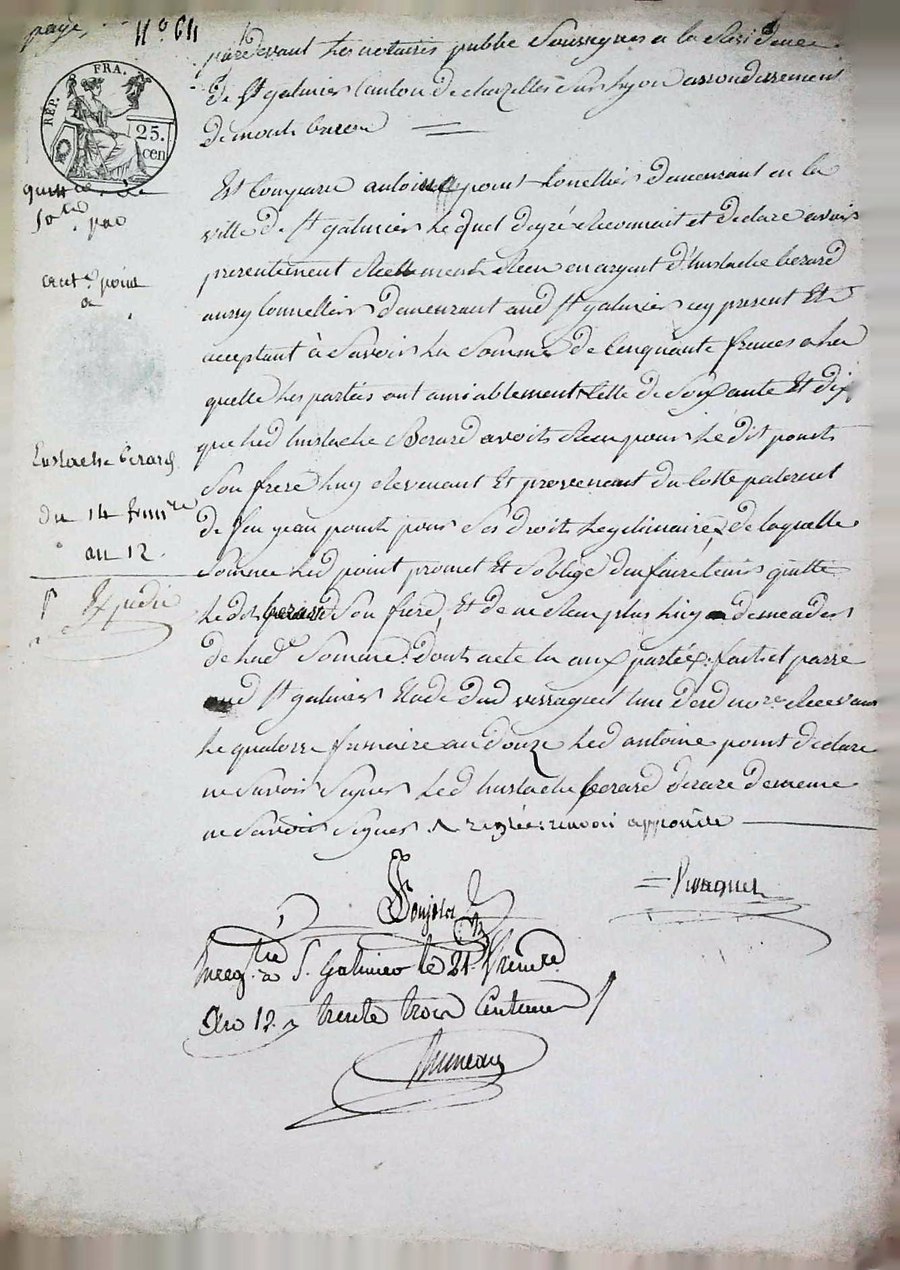 payé, N° 64
REP. FRA.
25. cen
pardevant Les notaires public Soussignes a la Residence
De St galmier Canton De chazelles Sur Lyon arrondissement
De montbrison
quittance
par
ant.e point
a
Eustache berard
du 14 frim.re
an 12
Expedié
Est Comparu antoine point tonellier Demeurant en la
ville De St galmier Lequel Degré Reconnait et Declare avoir
presentement Reellement Receu en argent D'hustache berard
aussy tonnellier Demeurant aud St galmier icy present Et
acceptant à Savoir La Somme De Cinquante francs a la
quelle Les parties ont amiablement Celle De Soixante Et dix
que led hustache Berard avoit Receu pour Le dit point
Son frere Luy Revenant Et provenant Du Cotte paternel
De feu jean point pour Ses Droits Legitimaires De laquelle
Somme Led point promet Et S'oblige D'en faire tenir quitte
Le dit berard Son frere, Et de ne Rien plus Luy Demander
De Lad.e Somme Dont acte aux parties fait et passé
aud St galmier Etude Dud vivagnet L'un Desd no.res Recevant
Le quatorze frimaire an Douze Led antoine point Declare
ne Savoir Signer Led hustache berard De meme
ne Savoir Signer renvoi approuvé
Enreg.tré à S. Galmier le 21. frimre
An 12. trente trois Centimes
Bruneau